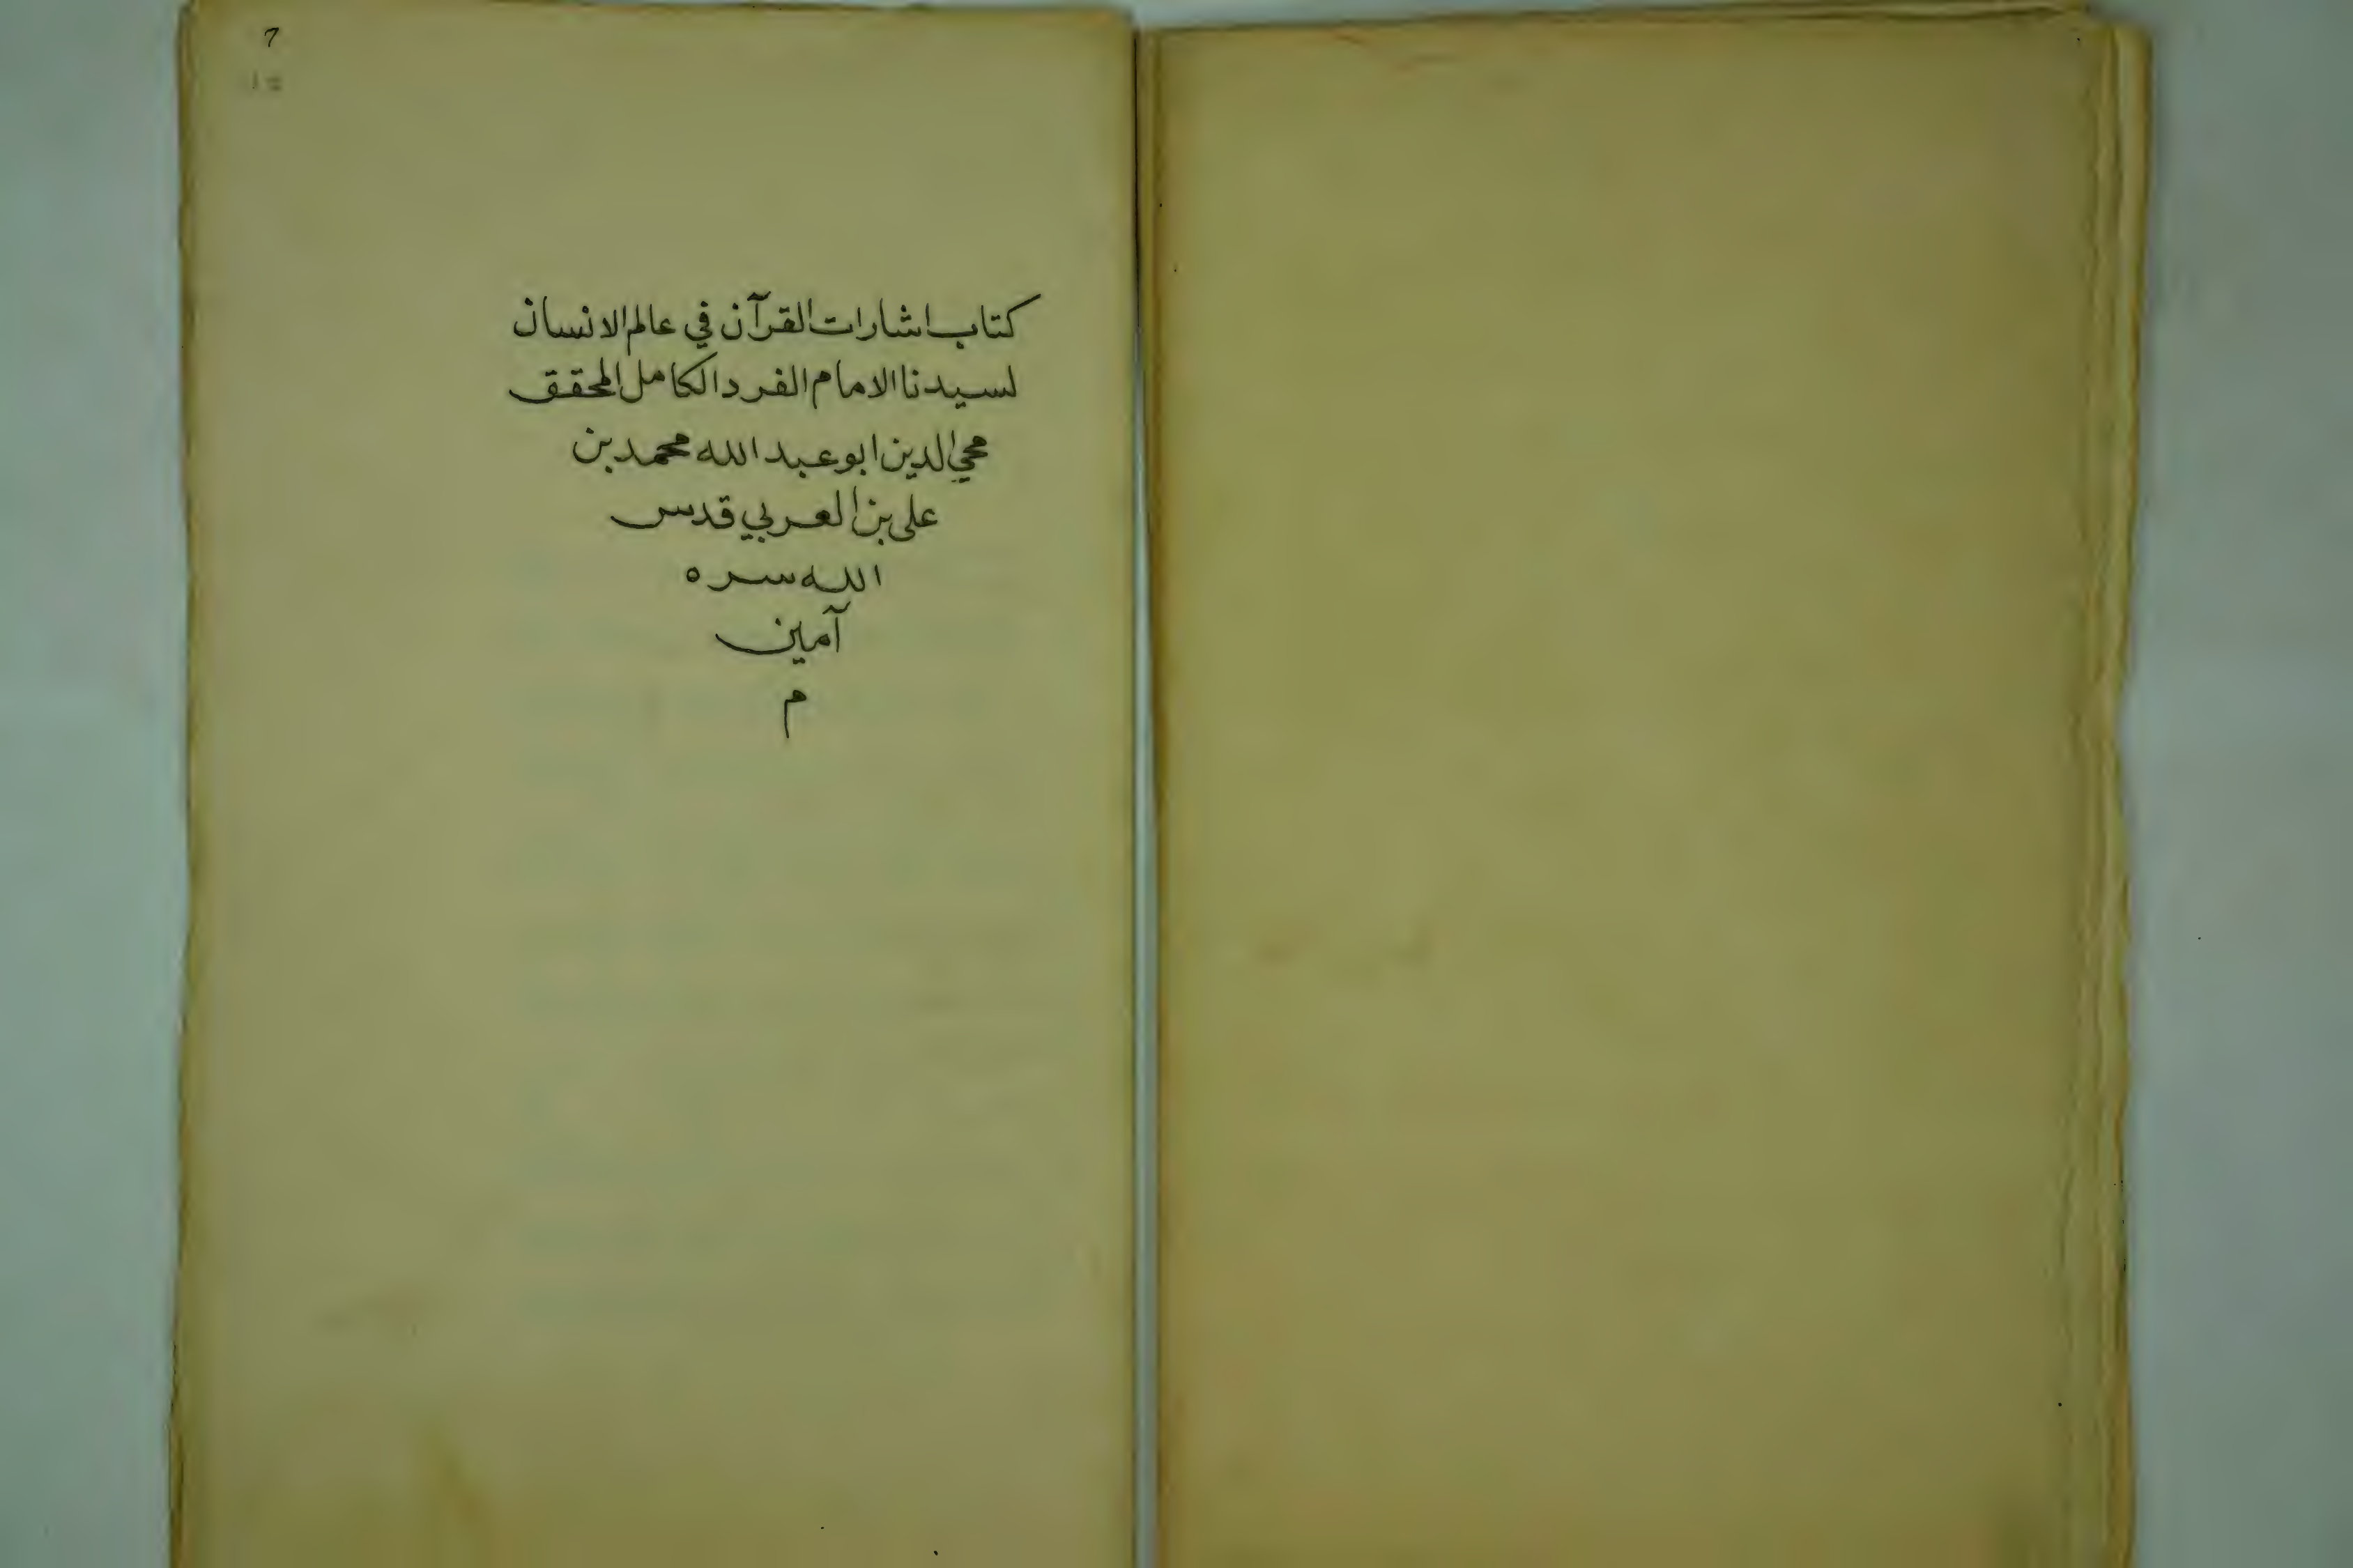 7
كتاب اشارات القرآن في عالم الانسان
لسيدنا الامام الفرد الكامل المحقق
محيي الدين ابو عبد الله محمد بن
على بن العربي قدس
الله سره
آمين
م